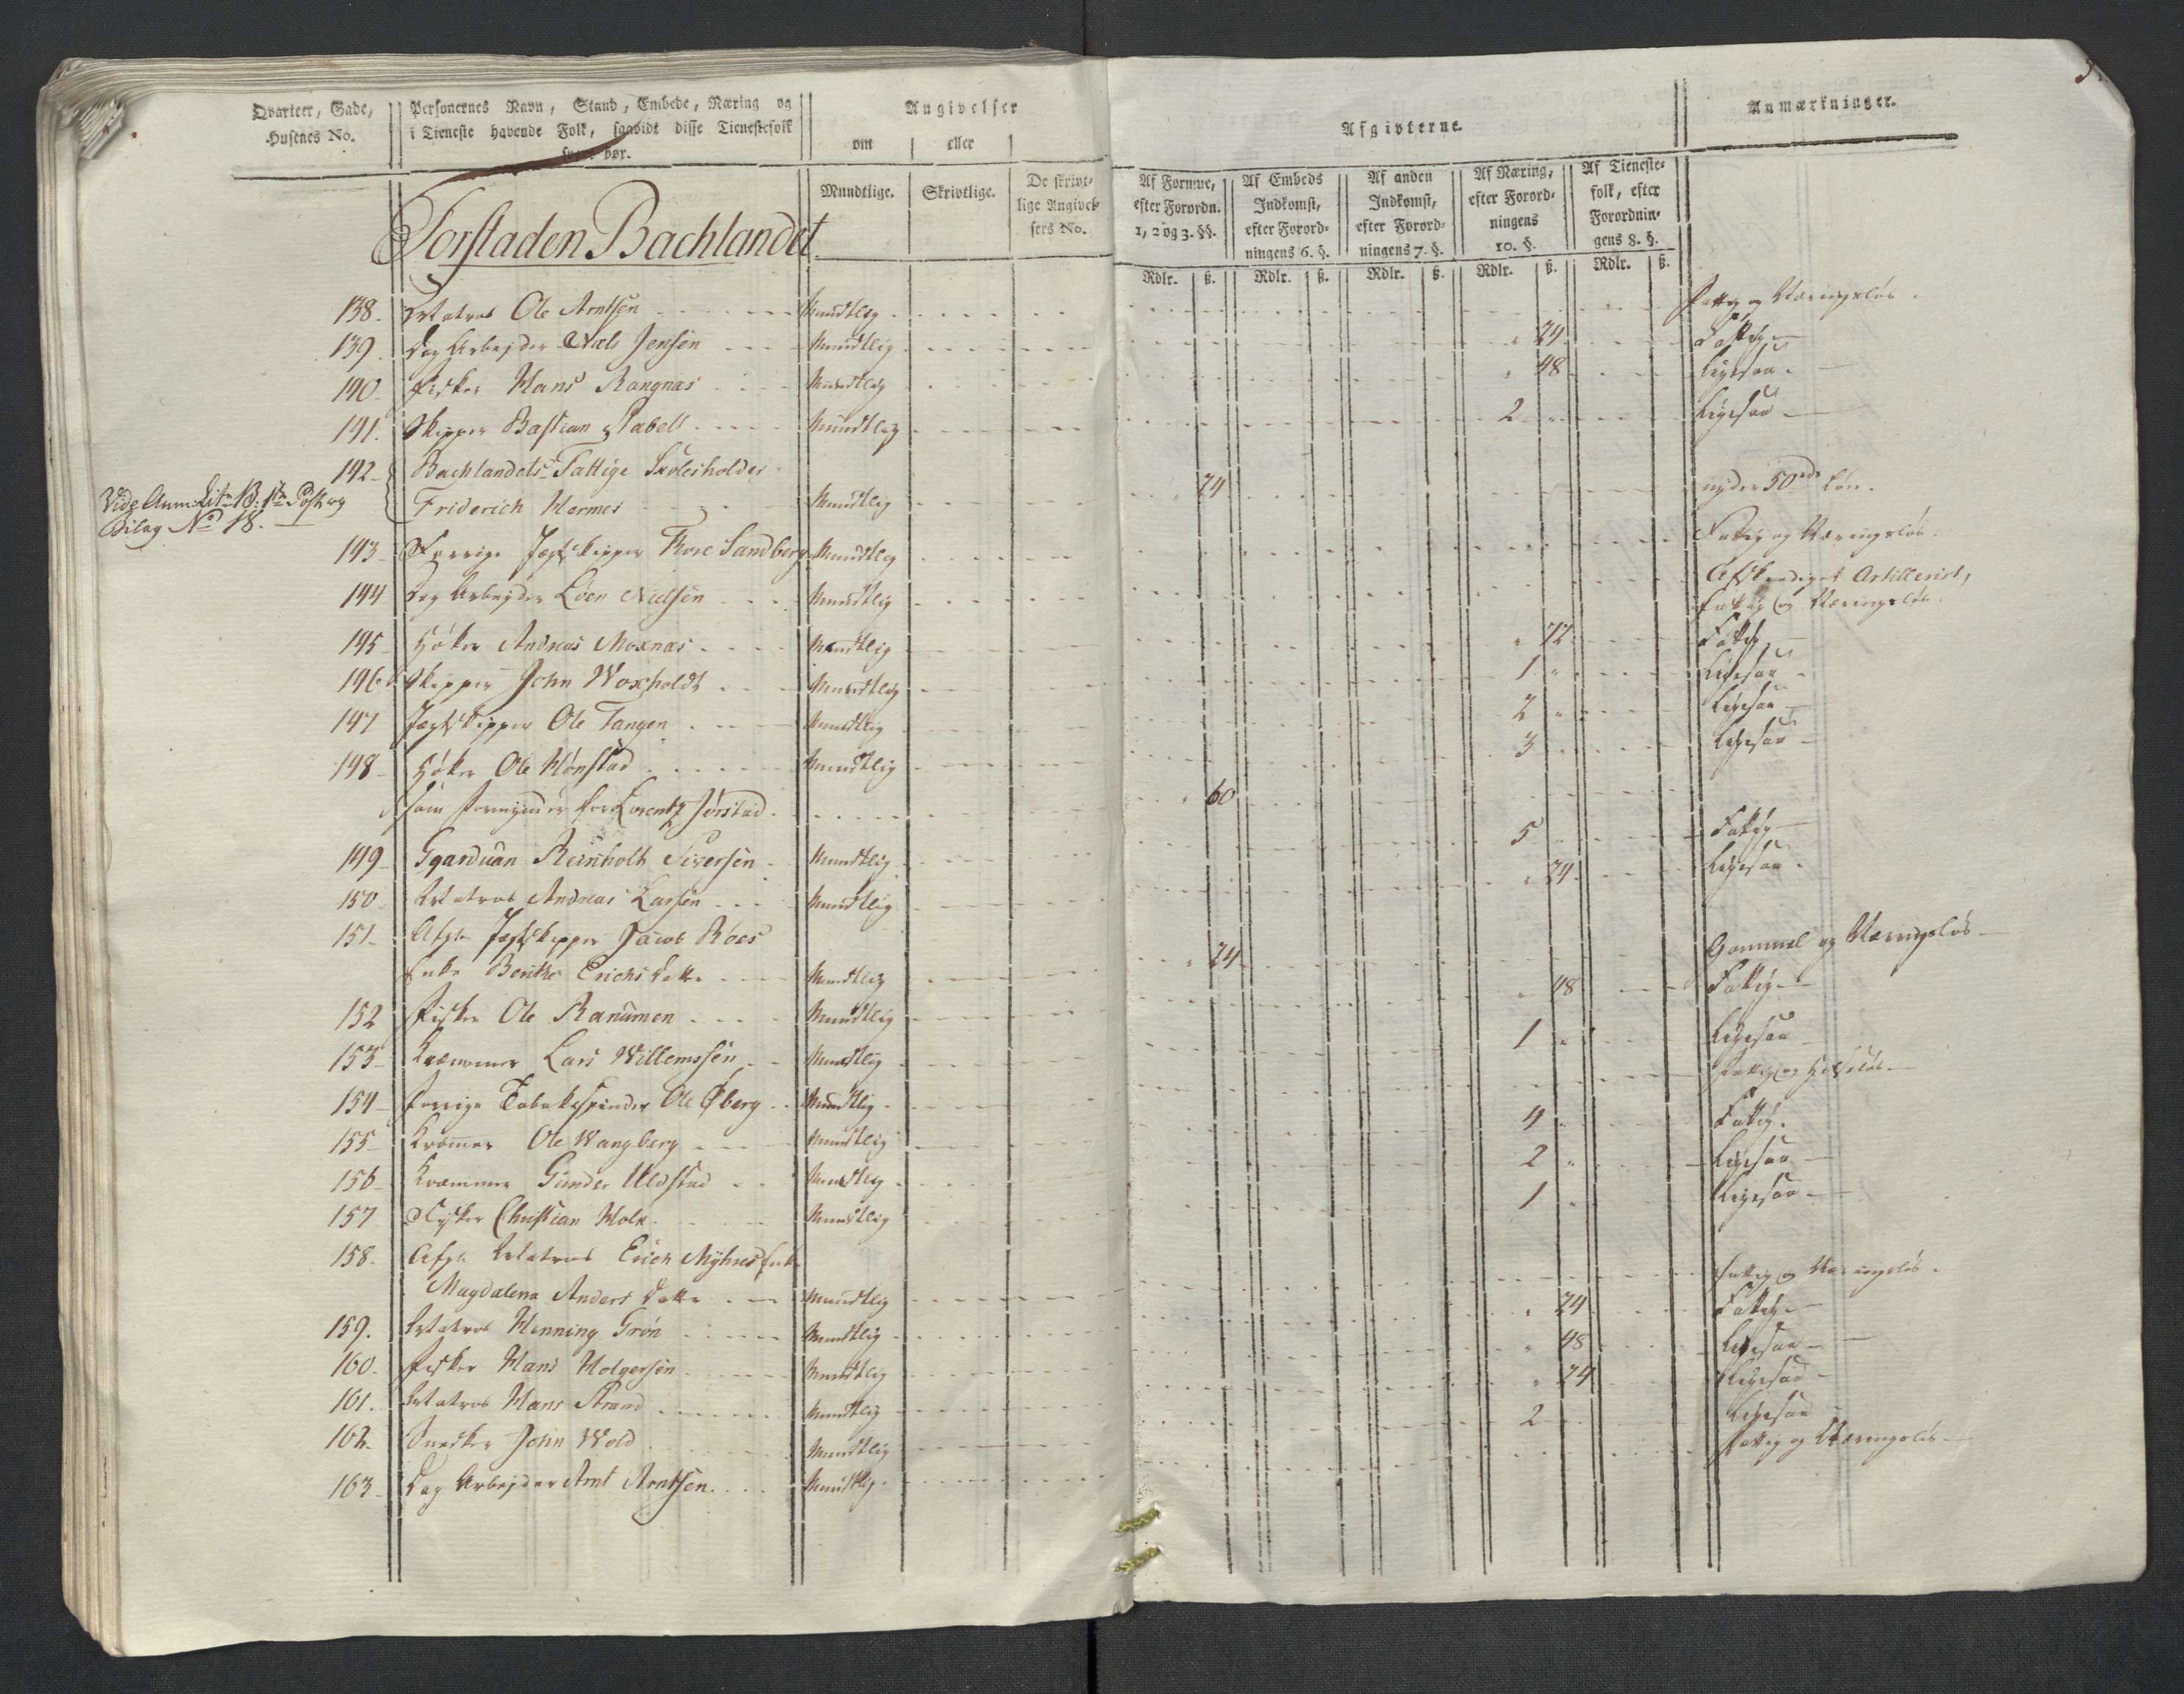 Qvarteer, Gade,
Husenes No.
Personernes Navn, Stand, Embede, Næring og
i Tieneste havende Folk, saavidt disse Tienestefolk
svare bør.
Angivelser
om eller
Mundtlige. Skrivtlige. De skrivt-
lige Angivel-
sers No.
Afgivterne.
Af Formue,
efter Forordn.
1, 2 og 3. §§.
Af Embeds
Indkomst,
efter Forord-
ningens 6. §.
Af anden
Indkomst,
efter Forord-
ningens 7. §.
Af Næring,
efter Forord-
ningens
10. §.
Af Tieneste-
folk, efter
Forordnin-
gens 8. §.
Anmærkninger.
Rdlr. ß. Rdlr. ß. Rdlr. ß. Rdlr. ß. Rdlr. ß.
Forstaden Bachlandet.
138. Matros Ole Arntsen Mundtlig Fattig og Næringsløs.
139. Dag Arbejder Niels Jensen Mundtlig " 24 Fattig
140. Fisker Hans Rangnæs Mundtlig " 48 Ligesaa.
141. Skipper Bastian Stabell Mundtlig 2 " Ligesaa
142. Bachlandets Fattige Skoleholder
Friderich Harmes Mundtlig " 24 nyder 50 rdr Løn.
Vide Anm: Litr B: 1ste Post og
Bilag No 18.
143. Forrige Jægtskipper Thore Sandberg Mundtlig Fattig og Næringsløs.
144. Dag Arbejder Loen Nielsen Mundtlig Afskeediget Artillerist,
Fattig og Næringsløs.
145. Høker Andreas Moxnæs Mundtlig " 72 Fattig
146. Skipper John Woxholdt Mundtlig 1 " Ligesaa
147 Jægtskipper Ole Tangen Mundtlig 2 " Ligesaa
148. Høker Ole Hønstad Mundtlig 3 " Ligesaa
som Formynder for Lorentz Jørstad " 60
149 Garduan Reinholt Siversen Mundtlig 5 Fattig
150 Matros Andreas Larsen Mundtlig " 24 Ligesaa.
151. Afgl. Jægtskipper Jacob Roes
Enke Berithe Erichs Datter Mundtlig " 24 Gammel og Næringsløs
152 Fisker Ole Ranumen Mundtlig " 48 Fattig
153 Kræmmer Lars Willemssen Mundtlig 1 " Ligesaa
154 Forrige Tobakspinder Ole Øberg Mundtlig Fattig og Helseløs
155 Kræmer Ole Wangberg Mundtlig 4 " Fattig.
156 Kræmmer Gunder Uldstad Mundtlig 2 " Ligesaa
157 Fisker Christian Holm Mundtlig 1 " Ligesaa
158. Afgl. Matros Erich Myhres Enke
Magdalena Anders Datter Mundtlig Fattig og Næringsløs.
159. Matros Henning Grøn Mundtlig " 24 Fattig
160. Fisker Hans Holgersen Mundtlig " 48 Ligesaa
161. Matros Hans Strand Mundtlig " 24 Ligesaa
162. Snedker John Wold Mundtlig 2 Ligesaa
163 Dag Arbejder Arnt Arntsen Mundtlig Fattig og Næringsløs